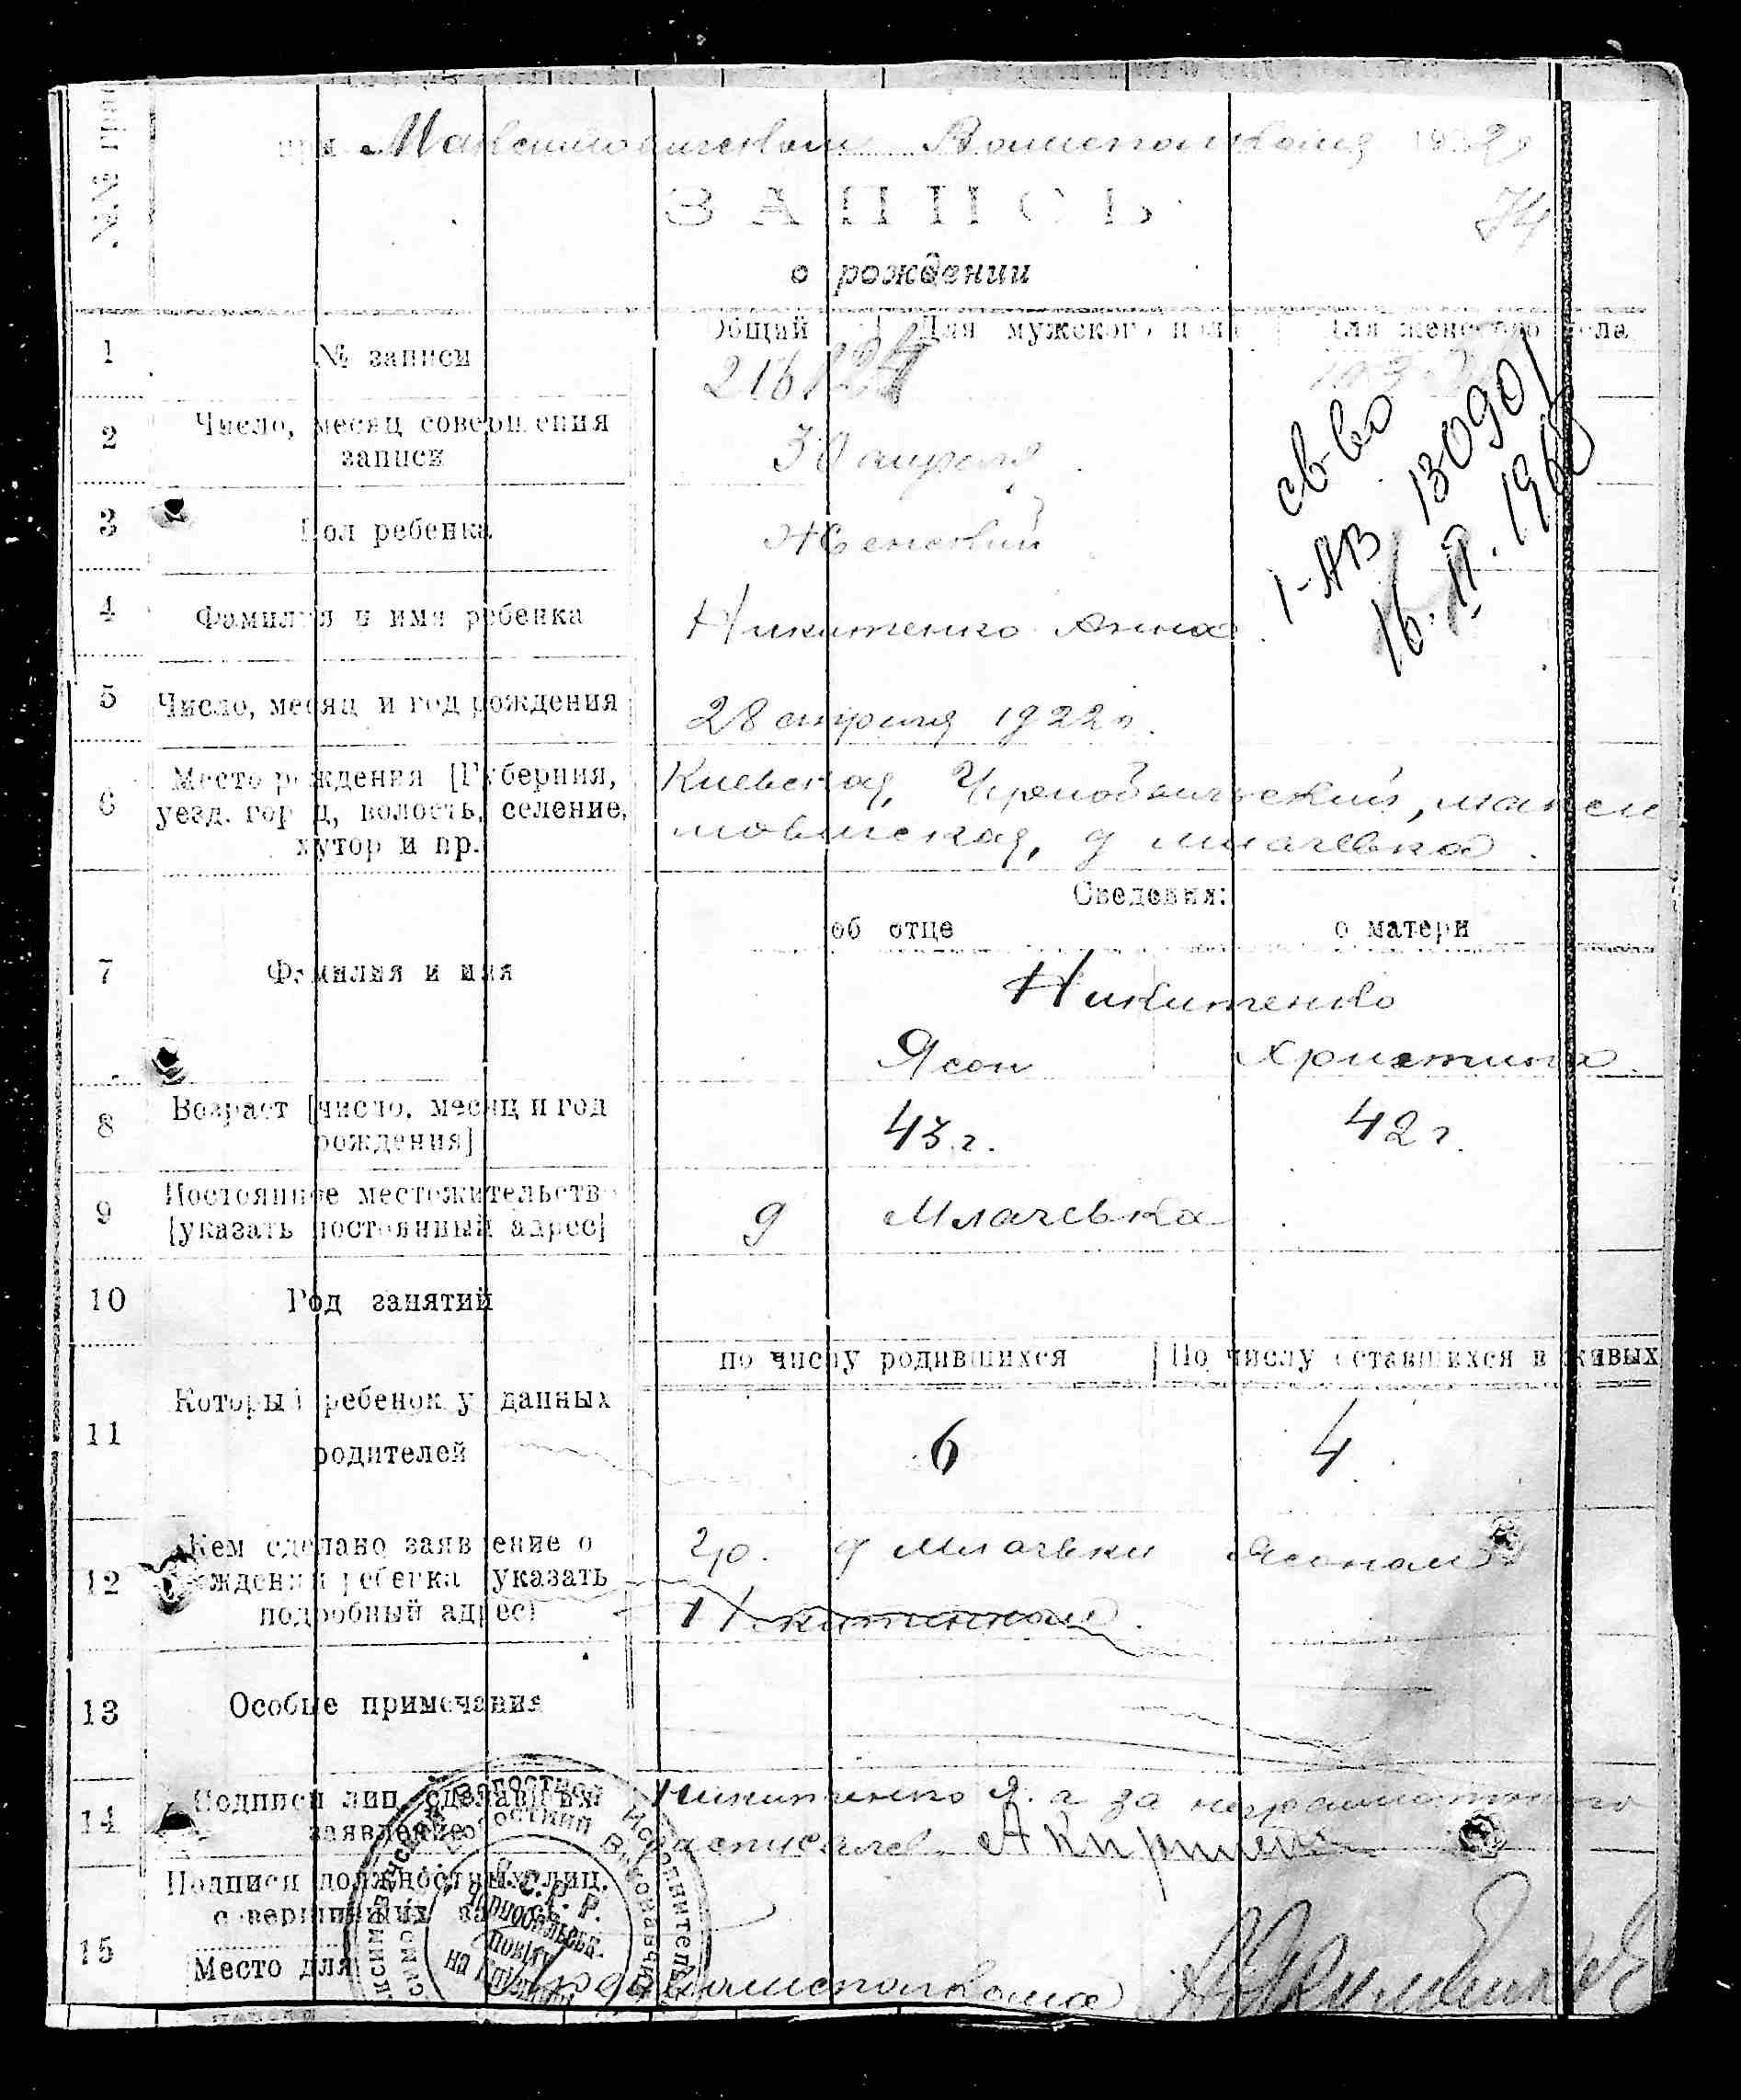 при Максимовичском Волисполкоме 1922
74
ЗАПИСЬ
о рождении
Общий Для мужского пола Для женского пола
1 № записи 216
св-во
1-АВ 130901
2 Число, месяц совершения
записи 30 апреля
3 Пол ребенка Женский
4 Фамилия и имя ребенка Никитенко Анна
5 Число, месяц и год рождения 28 апреля 1922 г.
6 Место рождения [Губерния,
уезд. город, волость, селение,
хутор и пр.]
Киевская, Чернобыльский, макси
мовичская, д млачевка.
Сведения:
об отце о матери
7 Фамилия и имя
Никитенко
Ясон Христина
8 Возраст [число, месяц и год
рождения] 43 г. 42 г.
9 Постоянное местожительство
[указать постоянный адрес] д Млачевка
10 Род занятий
по числу родившихся По числу оставшихся в живых
11 Который ребенок у данных
родителей 6 4
12 Кем сделано заявление о
рождении ребенка [указать
подробный адрес]
гр. д Млачевки Ясоном
Никитенком.
13 Особые примечания
14 Подписи лиц, сделавших
заявление
Никитенко Я. а за неграмотного
расписался
15 Подписи должностных лиц,
совершивших запись
Место для